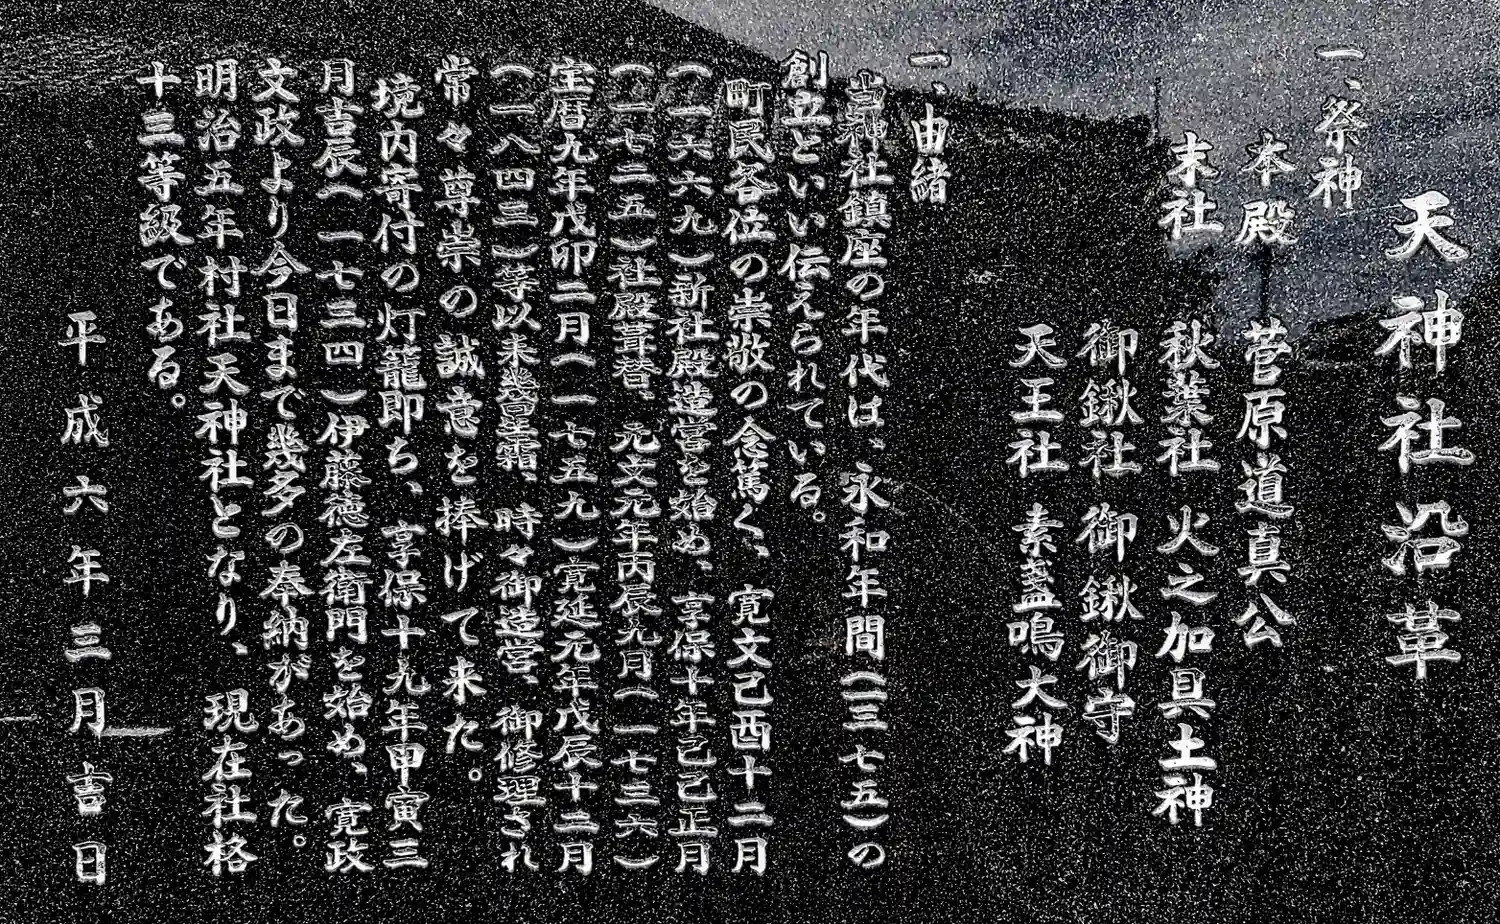 天神社沿革
一、祭神
本殿 菅原道真公
末社 秋葉社 火之加具土神
御鍬社 御鍬御守
天王社 素盞鳴大神
一、由緒
当神社鎮座の年代は、永和年間(一三七五)の
創立といい伝えられている。
町民各位の崇敬の念篤く、寛文己酉十二月
(一六六九)新社殿造営を始め、享保十年己巳正月
(一七二五)社殿葺替、元文元年丙辰九月(一七三六)
宝暦九年戊卯二月(一七五九)寛延元年戊辰十二月
(一八四三)等以来幾星霜、時々御造営、御修理され
常々尊崇の誠意を捧げて来た。
境内寄付の灯籠即ち、享保十九年甲寅三
月吉辰(一七三四)伊藤徳左衛門を始め、寛政
文政より今日まで幾多の奉納があった。
明治五年村社天神社となり、現在社格
十三等級である。
平成六年三月吉日